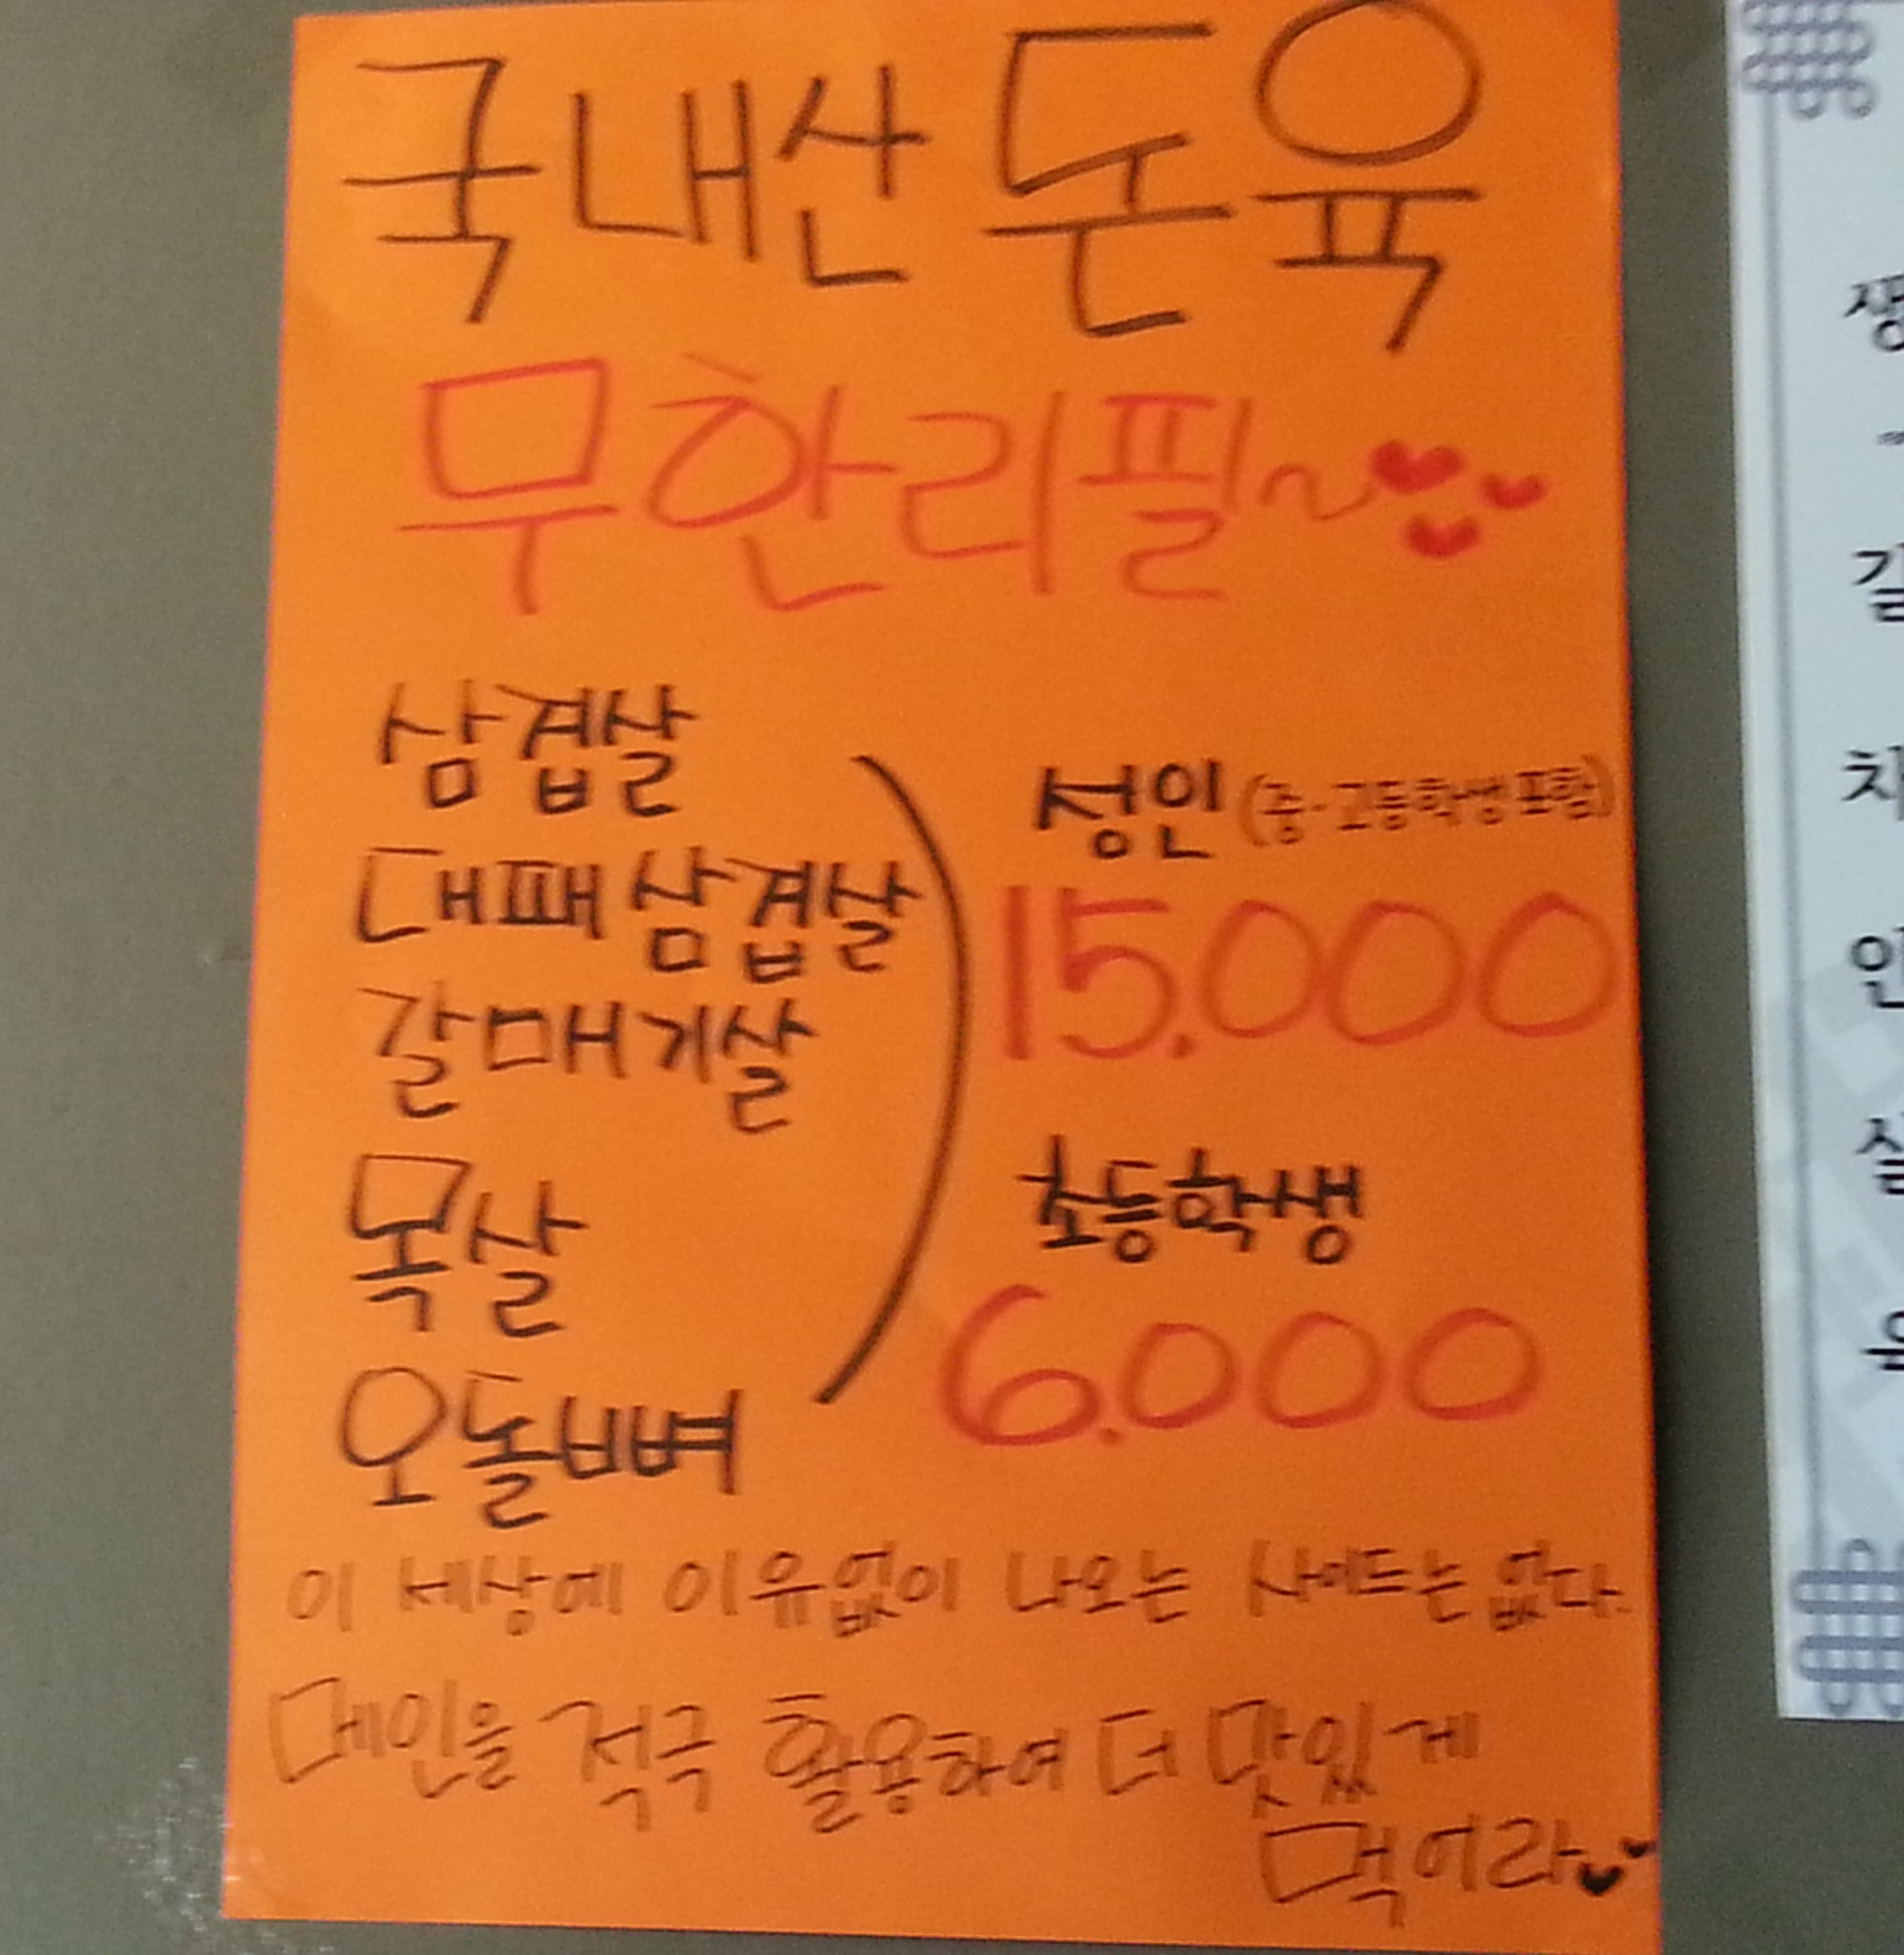 국내산 돈육
무한리필~
삼겹살
대패 삼겹살
갈매기살
목살
오돌뼈
성인 (중·고등학생 포함)
15.000
초등학생
6.000
이 세상에 이유없이 나오는 사이드는 없다.
메인을 적극 활용하여 더 맛있게
먹어라
생
갈